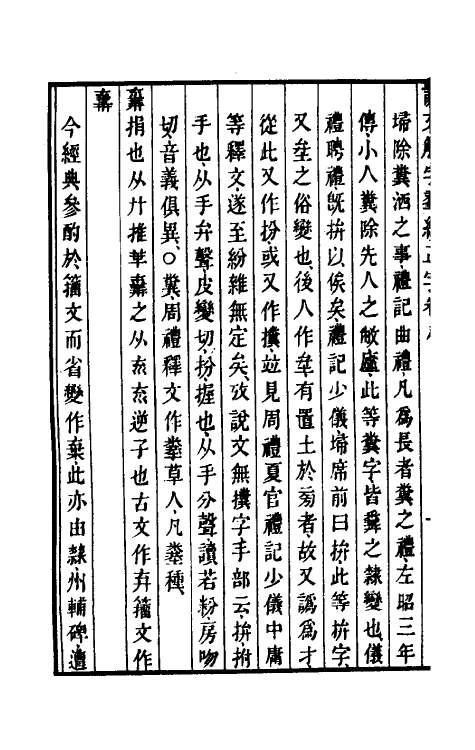 埽除糞洒之事禮記曲禮凡爲長者糞之禮左昭三年
傳小人糞除先人之敝廬此等糞字皆𡑅之隷變也儀
禮聘禮旣拚以俟矣禮記少儀埽席前曰拚此等拚字
又坌之俗變也後人作坌有置土於旁者故又譌爲才
從此又作扮或又作㩥竝見周禮夏官禮記少儀中庸
等釋文遂至紛雜無定矣攷說文無㩥字手部云拚拊
手也从手弁聲皮變切扮握也从手分聲讀若粉房吻
切音義俱異○糞周禮釋文作𡊄草人凡𡊄種
棄捐也从廾推𠦒棄之从𠫓𠫓逆子也古文作弃籒文作
棄
今經典參酌於籒文而省變作棄此亦由隷州輔碑遭